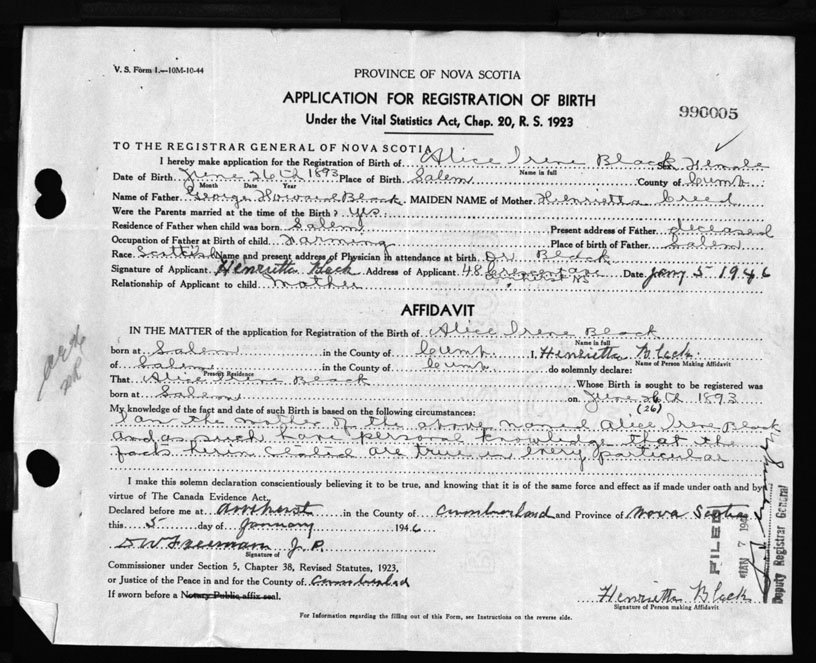 V. S. Form 1.—10M-10-44
PROVINCE OF NOVA SCOTIA
APPLICATION FOR REGISTRATION OF BIRTH
990005
Under the Vital Statistics Act, Chap. 20, R. S. 1923
TO THE REGISTRAR GENERAL OF NOVA SCOTIA
I hereby make application for the Registration of Birth of Alice Irene Black Sex Female
Name in full
Date of Birth June 26th 1893 Place of Birth Salem County of Cumb.
Month Date Year
Name of Father George Howard Black MAIDEN NAME of Mother Henrietta Creed
Were the Parents married at the time of the Birth? Yes
Residence of Father when child was born Salem Present address of Father deceased
Occupation of Father at Birth of child Farming Place of Birth of Father Salem
Race Scottish Name and present address of Physician in attendance at birth Dr Black
Signature of Applicant Henrietta Black Address of Applicant 48 Date Jany 5 1946
Relationship of Applicant to child mother
AFFIDAVIT
IN THE MATTER of the application for Registration of the Birth of Alice Irene Black
Name in full
born at Salem in the County of Cumb. I, Henrietta Black
Name of Person Making Affidavit
of Salem in the County of Cumb. do solemnly declare:
Present Residence
That Alice Irene Black Whose Birth is sought to be registered was
born at Salem on June 26th 1893
(26)
My knowledge of the fact and date of such Birth is based on the following circumstances:
I am the mother of the above named Alice Irene Black
and as such have personal knowledge that the
facts herin stated are true in every particular
I make this solemn declaration conscientiously believing it to be true, and knowing that it is of the same force and effect as if made under oath and by
virtue of The Canada Evidence Act.
Declared before me at Amherst in the County of Cumberland and Province of Nova Scotia
this 5 day of January 1946
D W Freeman J. P.
Signature of
Commissioner under Section 5, Chapter 38, Revised Statutes, 1923,
or Justice of the Peace in and for the County of Cumberland
If sworn before a Notary Public affix seal.
Henrietta Black
Signature of Person making Affidavit
FILED
JAN 7 194
Deputy Registrar General
For Information regarding the filling out of this Form, see Instructions on the reverse side.